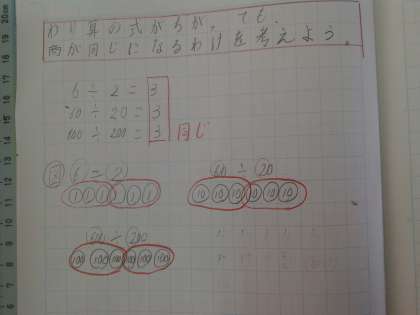 わり算の式がちがっても、
商が同じになるわけを考えよう。
6 ÷ 2 = 3
60 ÷ 20 = 3
600 ÷ 200 = 3 同じ
図 6 ÷ 2
① ① ① ① ① ①
60 ÷ 20
⑩ ⑩ ⑩ ⑩ ⑩ ⑩
600 ÷ 200
100 100 100 100 100 100